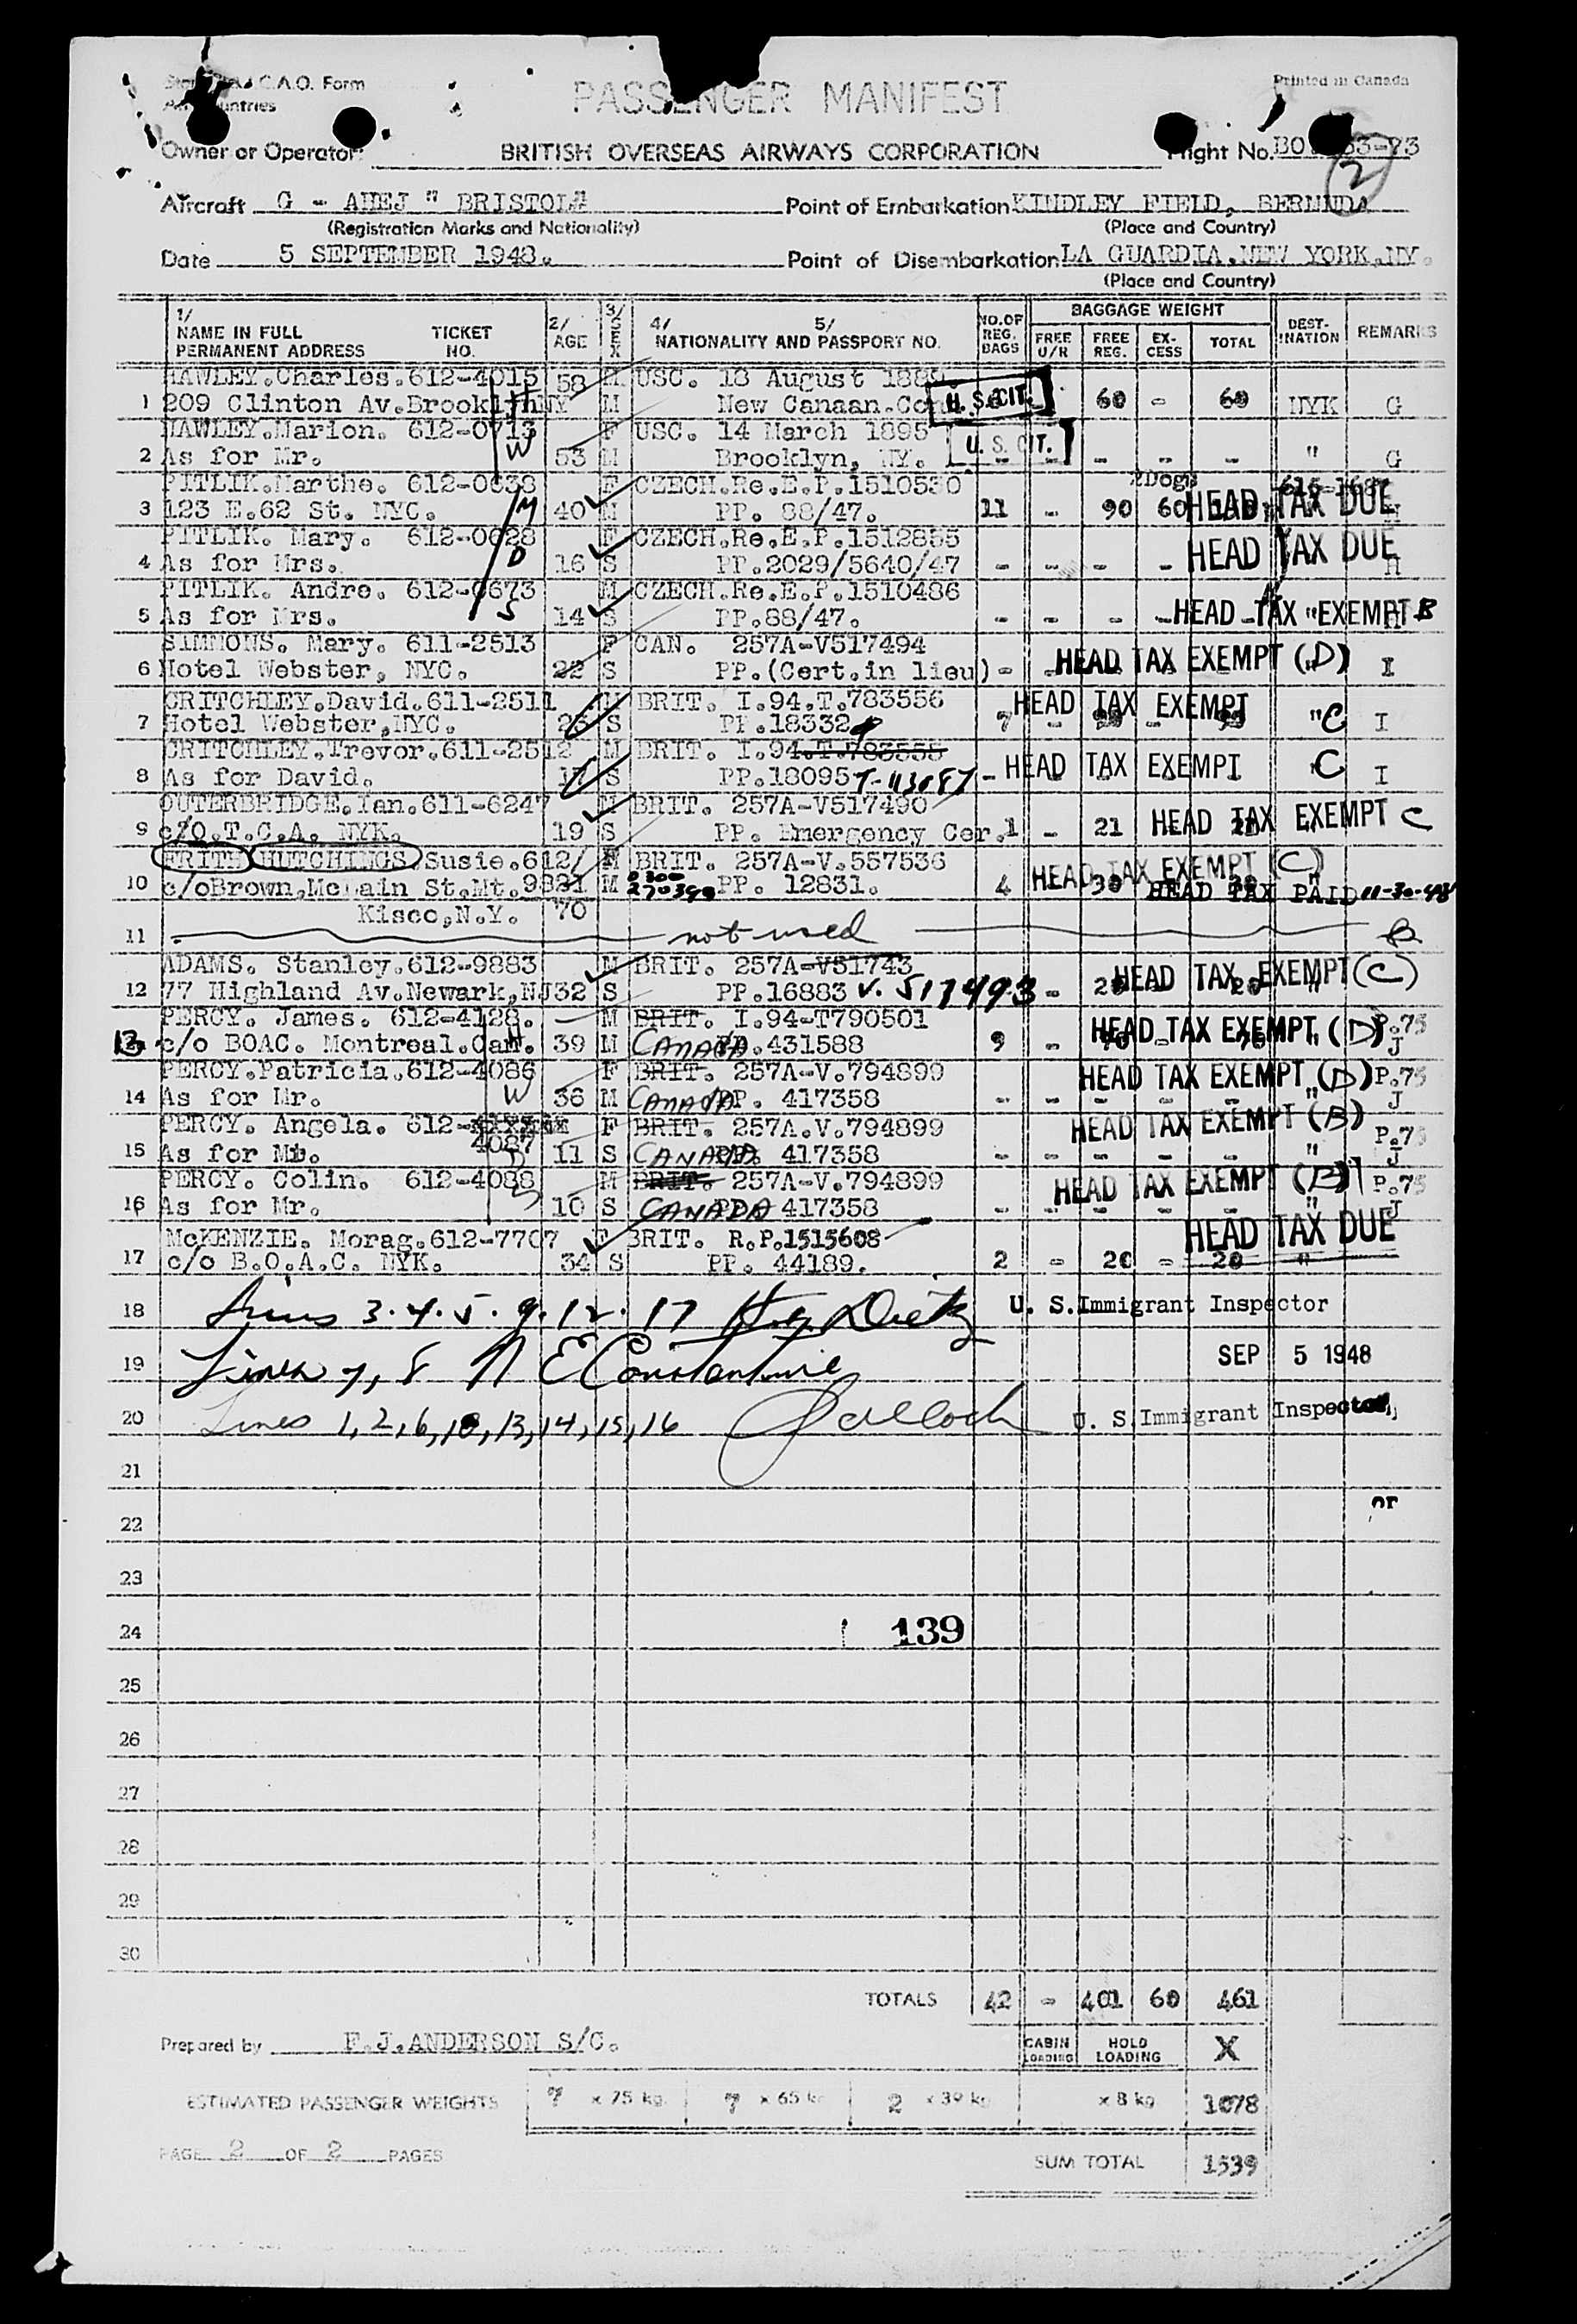 C.A.O. Form
Printed in Canada
PASSENGER MANIFEST
Owner or Operator: BRITISH OVERSEAS AIRWAYS CORPORATION Flight No. BO 53-23
2
Aircraft G - AHEJ " BRISTOL" Point of Embarkation KINDLEY FIELD, BERMUDA
(Registration Marks and Nationality) (Place and Country)
Date 5 SEPTEMBER 1948. Point of Disembarkation LA GUARDIA.NEW YORK,NY.
(Place and Country)
1/ NAME IN FULL PERMANENT ADDRESS TICKET NO. 2/ AGE 3/ SEX 4/ 5/ NATIONALITY AND PASSPORT NO. NO.OF REG. BAGS BAGGAGE WEIGHT FREE U/R FREE REG. EX-CESS TOTAL DEST-INATION REMARKS
HAWLEY.Charles.612-4015 58 M USC. 18 August 1889.
1 209 Clinton Av.Brooklyn NY M New Canaan.Con U.S.CIT. 60 - 60 NYK G
HAWLEY.Marion. 612-0713 F USC. 14 March 1895 U. S. CIT.
2 As for Mr. W 53 M Brooklyn, NY. - - - - - " G
PITLIK.Marthe. 612-0638 F CZECH.Re.E.P.1510530 2Dogs
3 123 E.62 St. NYC. M 40 M PP. 88/47. 11 - 90 60 HEAD TAX DUE
PITLIK. Mary. 612-0628 F CZECH.Re.E.P.1512855
4 As for Mrs. D 16 S PP.2029/5640/47 - - - - HEAD TAX DUE H
PITLIK. Andre. 612-0673 M CZECH.Re.E.P.1510486
5 As for Mrs. S 14 S PP.88/47. - - - - HEAD TAX EXEMPT B
SIMMONS. Mary. 611-2513 F CAN. 257A-V517494
6 Hotel Webster, NYC. 22 S PP.(Cert.in lieu) - HEAD TAX EXEMPT (D) I
CRITCHLEY.David.611-2511 M BRIT. I.94.T.783556
7 Hotel Webster,NYC. 23 S PP.18332 7 HEAD TAX EXEMPT " C I
CRITCHLEY.Trevor.611-2512 M BRIT. I.94.T.783555
8 As for David. 17 S PP.18095 T-113087 - HEAD TAX EXEMPT " C I
OUTERBRIDGE.Ian.611-6247 M BRIT. 257A-V517490
9 c/o.T.C.A. NYK. 19 S PP. Emergency Cer. 1 - 21 HEAD TAX EXEMPT C
FRITH HUTCHINGS Susie.612/ F BRIT. 257A-V.557536 HEAD TAX EXEMPT (C)
10 c/oBrown,McLain St.Mt.9881 M 0300 270390 PP. 12831. 4 30 HEAD TAX PAID 11-30-48
Kisco,N.Y. 70
11 not used
ADAMS. Stanley.612-9883 M BRIT. 257A-V51743
12 77 Highland Av.Newark,NJ 32 S PP.16883 V. 517493 - 20 HEAD TAX EXEMPT (C)
PERCY. James. 612-4128. M BRIT. I.94-T790501 P.75
13 c/o BOAC. Montreal.Can. H 39 M CANADA PP.431588 9 - HEAD TAX EXEMPT (D) J
PERCY.Patricia.612-4086 F BRIT. 257A-V.794899 HEAD TAX EXEMPT (D) P.75
14 As for Mr. W 36 M CANADA PP. 417358 - - - - - " J
PERCY. Angela. 612-4087 F BRIT. 257A.V.794899 HEAD TAX EXEMPT (B) P.75
15 As for Mr. D 11 S CANADA PP. 417358 - - - - - " J
PERCY. Colin. 612-4088 M BRIT. 257A-V.794899 HEAD TAX EXEMPT (B) P.75
16 As for Mr. S 10 S CANADA PP. 417358 - - - - - " J
McKENZIE. Morag.612-7707 F BRIT. R.P.1515608 HEAD TAX DUE
17 c/o B.O.A.C. NYK. 34 S PP. 44189. 2 - 20 - 20 "
18 Lines 3.4.5.9.12.17 U. S.Immigrant Inspector
19 Lines 7, 8 N E Constantine SEP 5 1948
20 Lines 1,2,6,10,13,14,15,16 U. S.Immigrant Inspector
21
or
22
23
24 139
25
26
27
28
29
30
TOTALS 42 - 401 60 461
Prepared by F.J.ANDERSON S/C. CABIN LOADING HOLD LOADING X
ESTIMATED PASSENGER WEIGHTS 7 x 75 kg. 7 x 65 kg 2 x 39 kg x 8 kg 1078
PAGE 2 OF 2 PAGES SUM TOTAL 1539